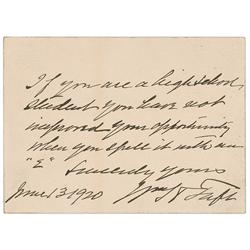 If you are a high school
student you have not
improved your opportunity
when you spell it with an
"E"
Sincerely yours
June 13 1920 Wm H Taft